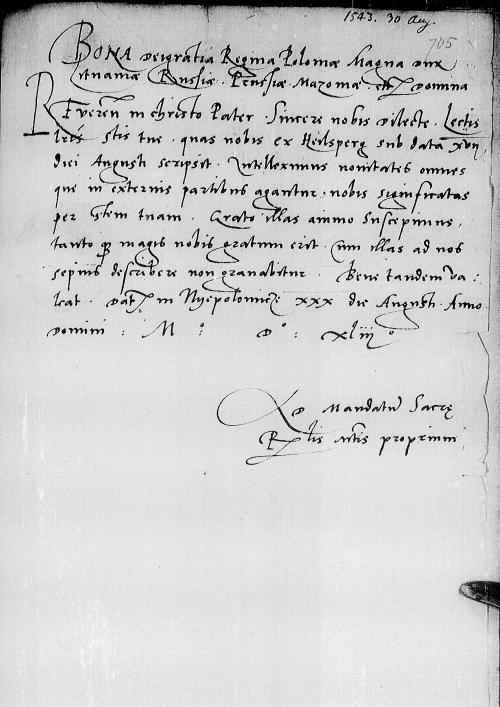 1543. 30 Aug.
705
BONA deigratia Regina Poloniæ Magna dux
Litnaniæ Russiæ Prussiæ Mazoniæ etc domina
Reveren in christo Pater Sincere nobis dilecte. Lectis
lrēs Stis tue quas nobis ex Heilsperg sub data xvij
diei Augusti scripsit. Intelleximus nouitates omnes
que in externis partibus agantur, nobis significatas
per Stem tuam. Grato illas animo suscepimus,
tanto magis nobis gratum erit illas ad nos
sepius describere non grauabitur. Bene tandem va:
leat. Dat in Nyepolomicze xxx die Augusti Anno
domini : M : D : xliij
Ad Mandatū Sacrę
R lis Mtis proprium